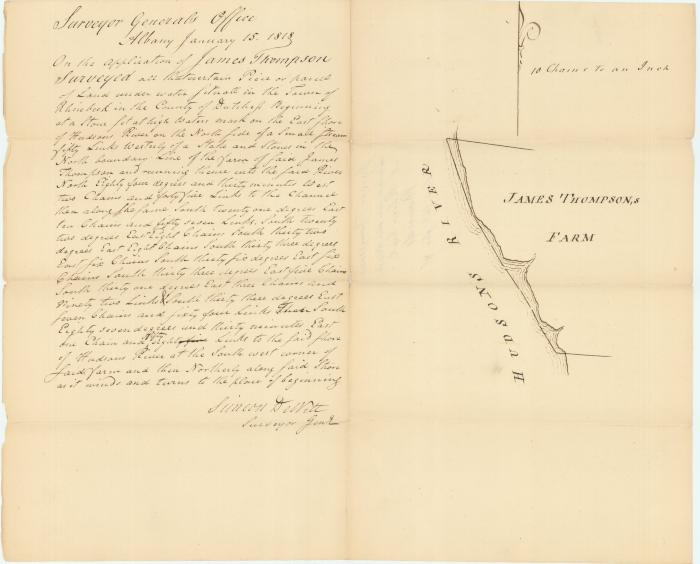 Surveyor General's Office
Albany January 15. 1818
On the application of James Thompson
Surveyed all that certain Piece or parcel
of Land under water situate in the Town of
Rhinebeck in the County of Dutchess Beginning
at a Stone set at high Water mark on the East shore
of Hudsons River on the North side of a Small stream
fifty Links Westerly of a Stake and Stones in the
North boundary Line of the farm of said James
Thompson and running thence into the said River
North Eighty four degrees and thirty minutes West
two Chains and forty five Links to the Channel
then along the same South twenty one degrees East
ten Chains and fifty seven Links, South twenty
two degrees East Eight Chains South thirty two
degrees East Eight Chains South thirty three degrees
East six Chains South thirty six degrees East six
Chains South thirty three degrees East five Chains
South thirty one degrees East three Chains and
Ninety two Links South thirty three degrees East
seven Chains and sixty four Links Then South
Eighty seven degrees and thirty minutes East
one Chain and Eighty five Links to the said shore
of Hudsons River at the South west corner of
said farm and then Northerly along said Shore
as it winds and turns to the place of beginning
Simeon DeWitt
Surveyor Genl
10 Chains to an Inch
JAMES THOMPSON,s
FARM
HUDSONS RIVER